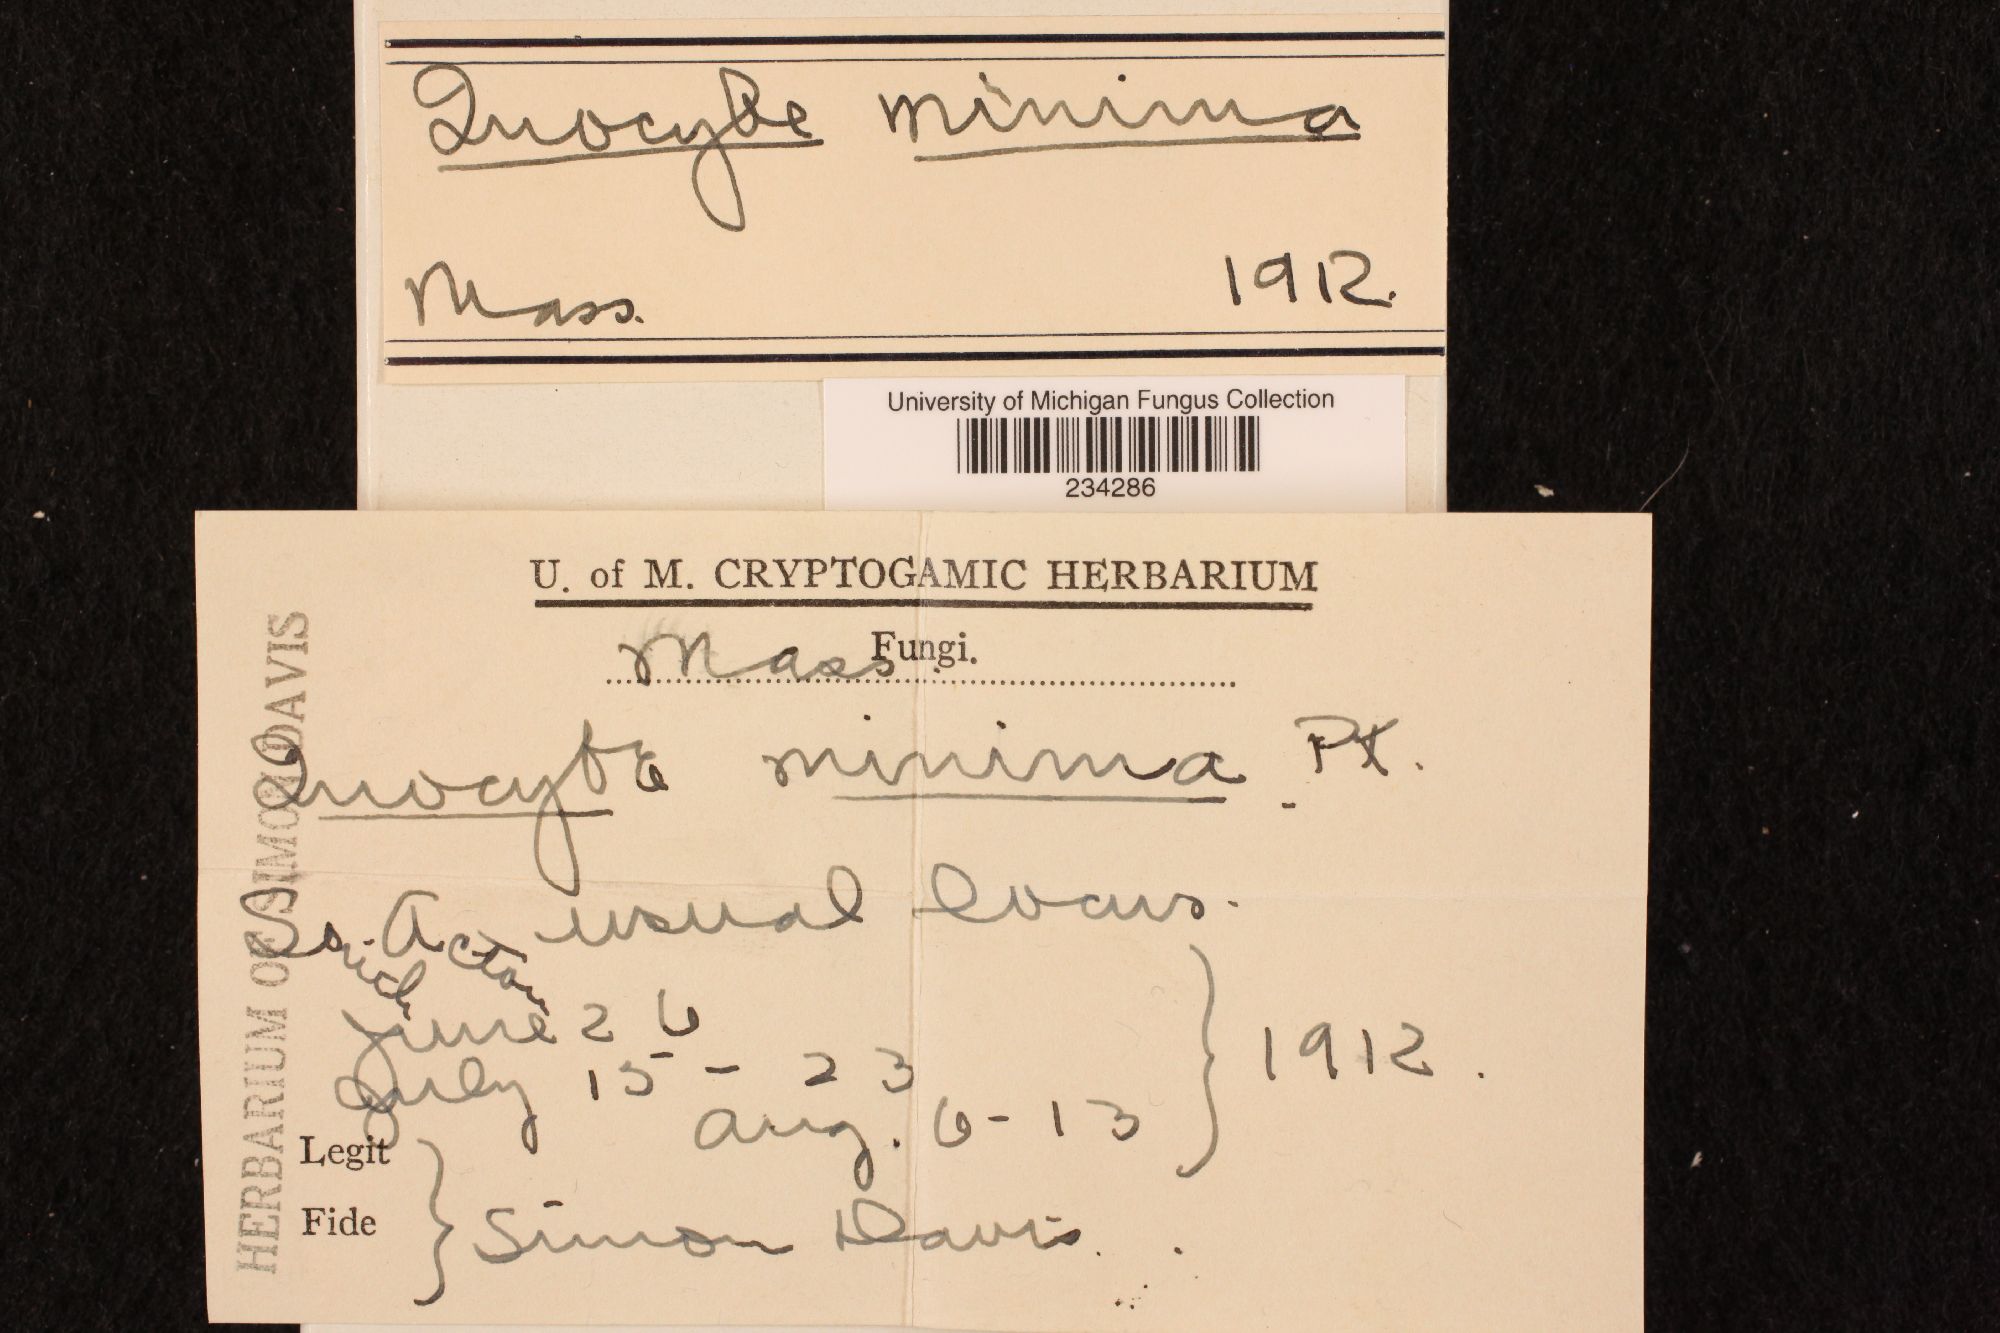 Inocybe minima
Mass. 1912.
University of Michigan Fungus Collection
234286
U. of M. CRYPTOGAMIC HERBARIUM
Mass. Fungi.
Inocybe minima Pk.
So. Acton usual locus.
June 26
July 15 - 23
Aug. 6 - 13
1912.
Legit
Fide
Simon Davis.
HERBARIUM OF SIMON DAVIS